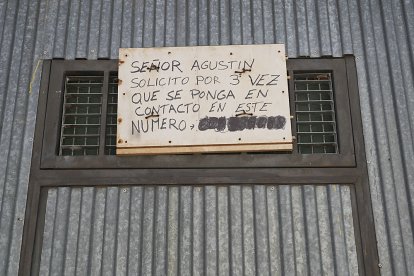 SEÑOR AGUSTIN
SOLICITO POR 3ª VEZ
QUE SE PONGA EN
CONTACTO EN ESTE
NÚMERO,